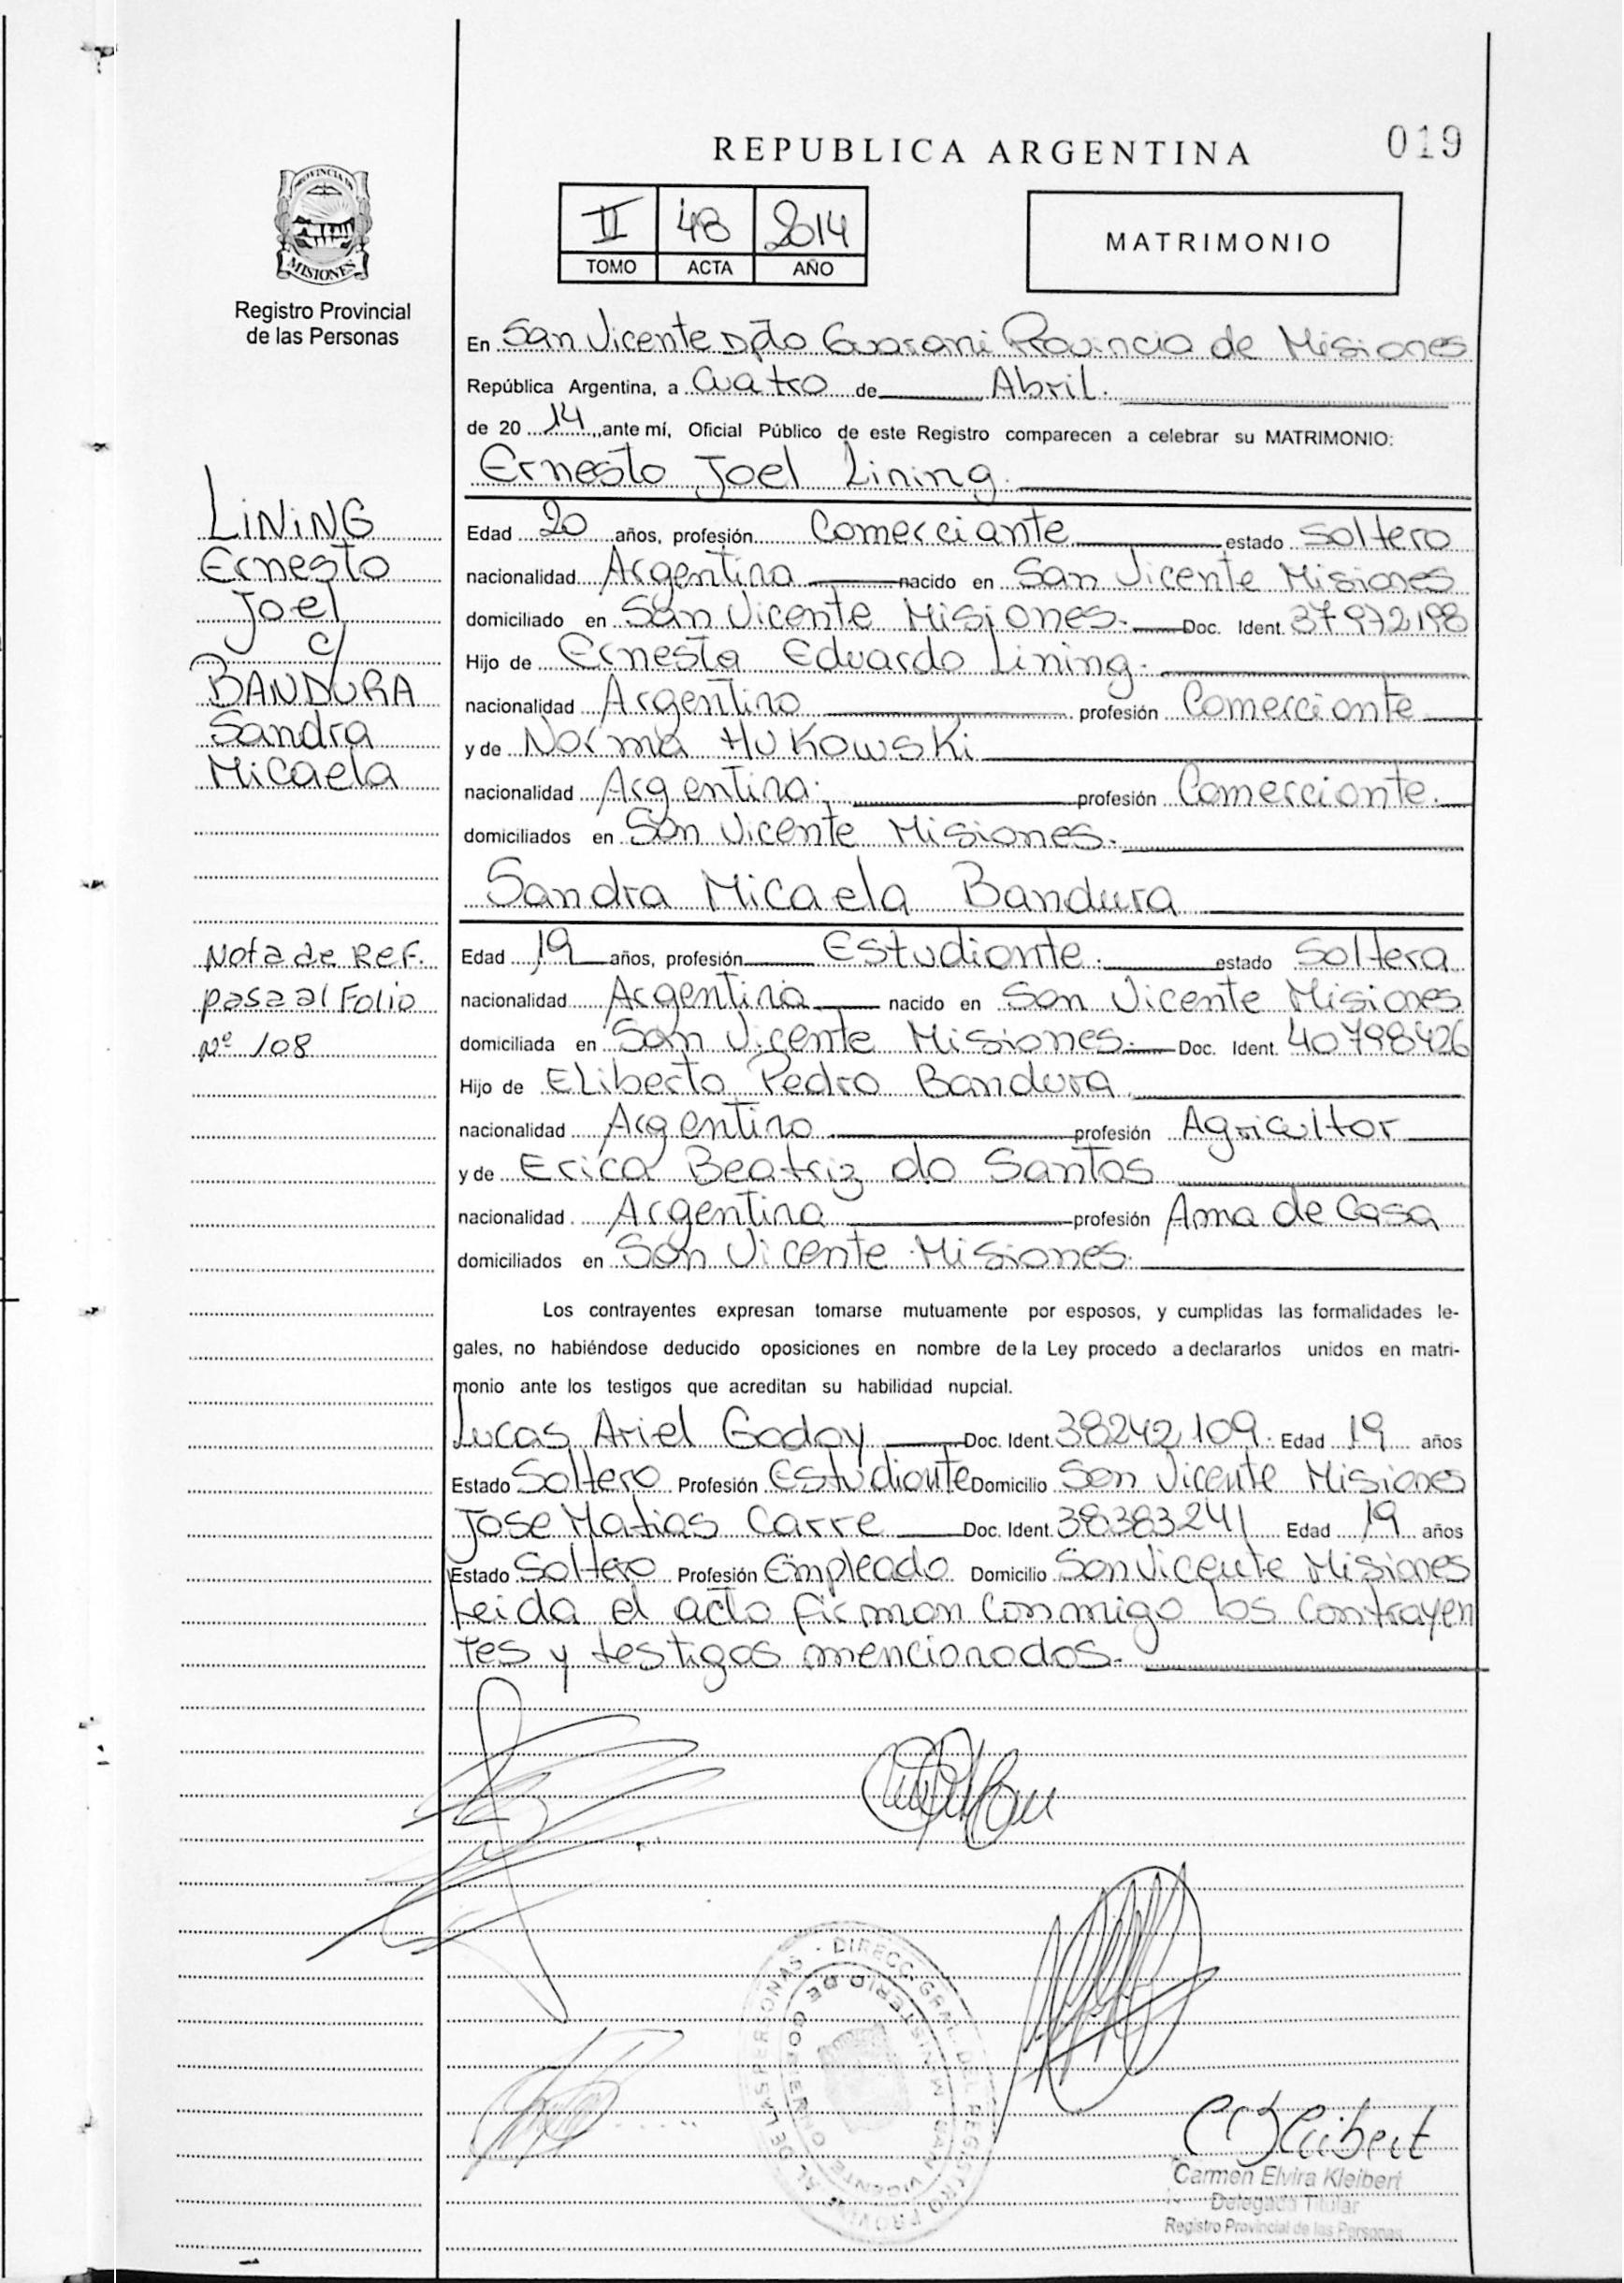 REPUBLICA ARGENTINA
019
PROVINCIA DE
MISIONES
Registro Provincial
de las Personas
II 48 2014
TOMO ACTA AÑO
MATRIMONIO
En San Vicente Dpto Guarani Provincia de Misiones
República Argentina, a Cuatro de Abril.
de 20 14 ante mí, Oficial Público de este Registro comparecen a celebrar su MATRIMONIO:
Ernesto Joel Lining.
Edad 20 años, profesión Comerciante estado Soltero
nacionalidad Argentina nacido en San Vicente Misiones
domiciliado en San Vicente Misiones. Doc. Ident. 37972198
Hijo de Ernesto Eduardo Lining.
nacionalidad Argentino profesión Comerciante
y de Norma Hukowski
nacionalidad Argentina. profesión Comerciante.
domiciliados en San Vicente Misiones.
Sandra Micaela Bandura
Edad 19 años, profesión Estudiante. estado Soltera
nacionalidad Argentina nacido en San Vicente Misiones
domiciliada en San Vicente Misiones. Doc. Ident. 40798426
Hijo de Eliberto Pedro Bandura
nacionalidad Argentino profesión Agricultor
y de Erica Beatriz do Santos
nacionalidad Argentina profesión Ama de Casa
domiciliados en San Vicente Misiones.
Los contrayentes expresan tomarse mutuamente por esposos, y cumplidas las formalidades le-
gales, no habiéndose deducido oposiciones en nombre de la Ley procedo a declararlos unidos en matri-
monio ante los testigos que acreditan su habilidad nupcial.
Lucas Ariel Godoy Doc. Ident. 38242109. Edad 19 años
Estado Soltero Profesión Estudiante Domicilio San Vicente Misiones
Jose Matias Carre Doc. Ident. 38383241 Edad 19 años
Estado Soltero Profesión Empleado Domicilio San Vicente Misiones
Leida el acta firman conmigo los contrayen
tes y testigos mencionados.
LINING
Ernesto
Joel
c/
BANDURA
Sandra
Micaela
Nota de Ref.
pasa al Folio
Nº 108
DIRECC. GRAL. DEL REGISTRO PROVINCIAL DE LAS PERSONAS
MINISTERIO DE GOBIERNO
SAN VICENTE
Carmen Elvira Kleibert
Delegada Titular
Registro Provincial de las Personas